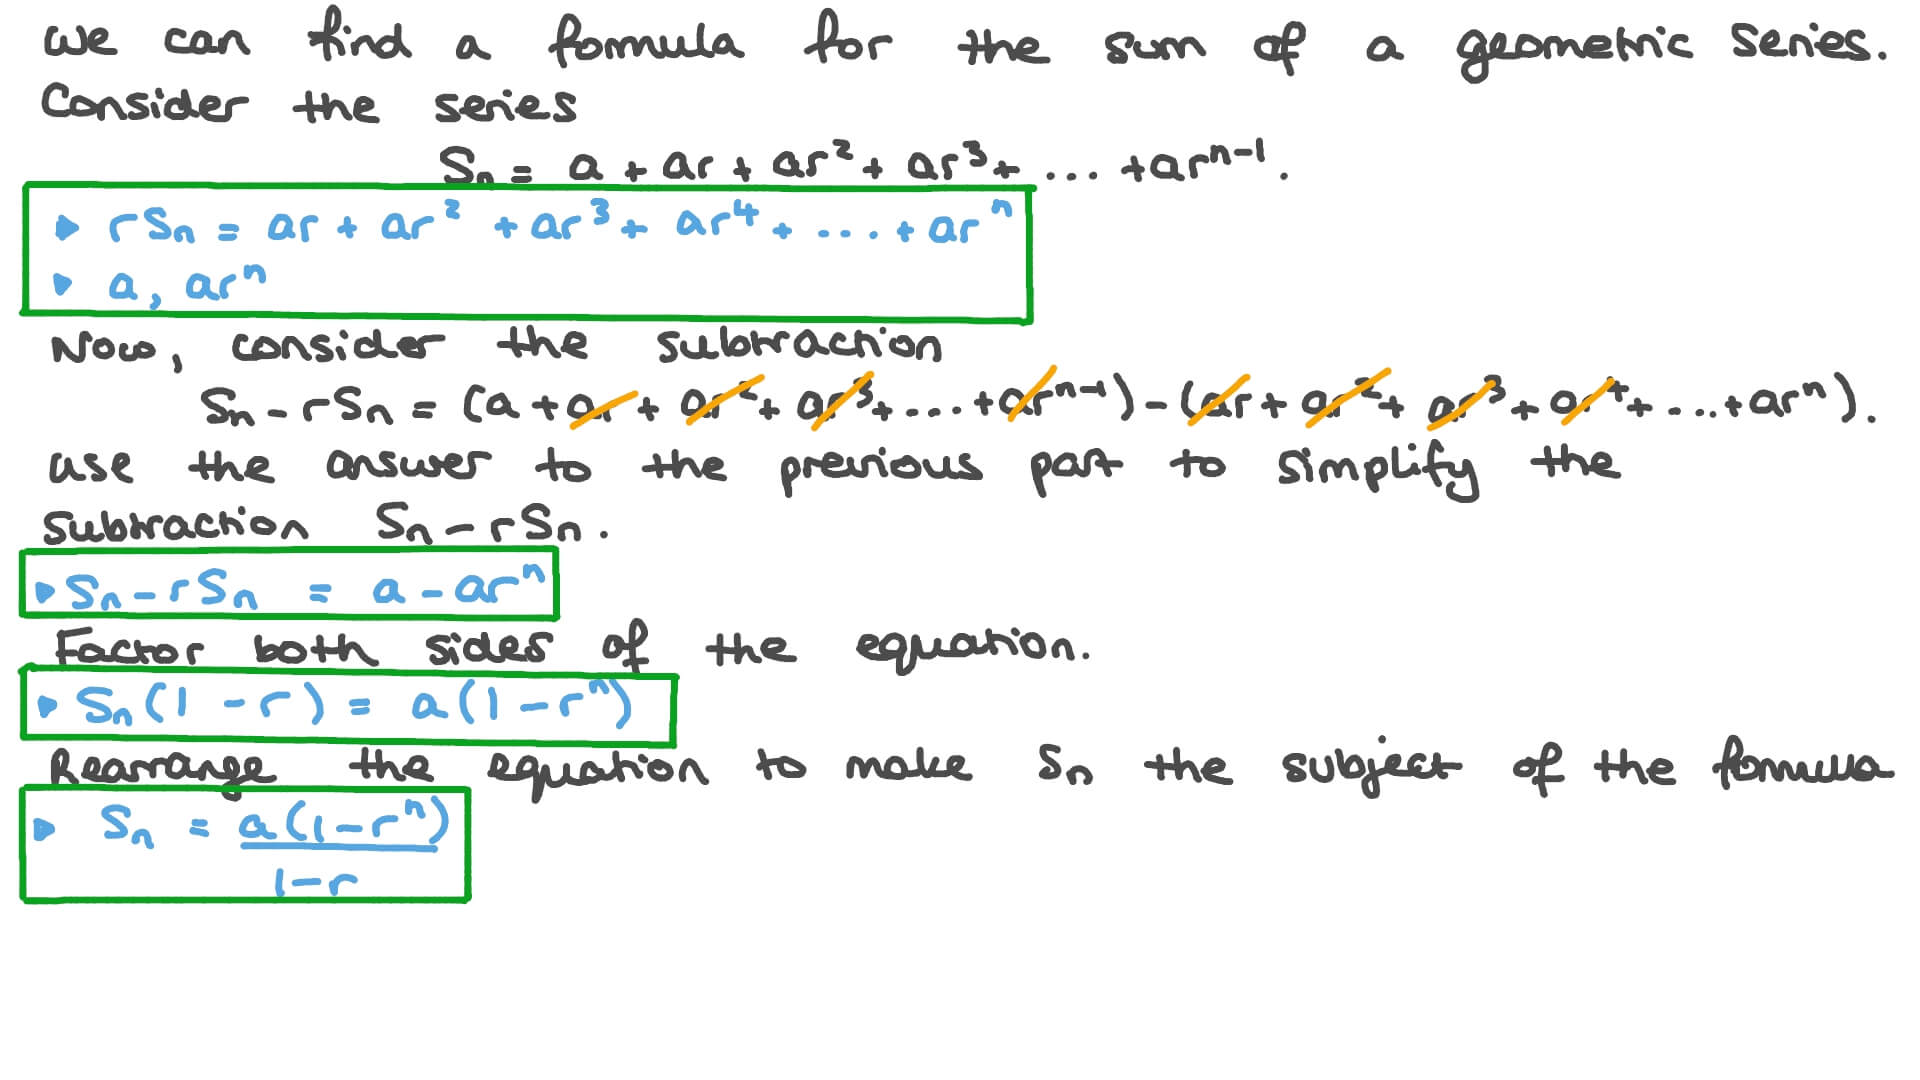 We can find a formula for the sum of a geometric series.
Consider the series
Sₙ = a + ar + ar² + ar³ + ... + arⁿ⁻¹.
▸ rSₙ = ar + ar² + ar³ + ar⁴ + ... + arⁿ
▸ a, arⁿ
Now, consider the subtraction
Sₙ - rSₙ = (a + ar + ar² + ar³ + ... + arⁿ⁻¹) - (ar + ar² + ar³ + ar⁴ + ... + arⁿ).
use the answer to the previous part to simplify the
subtraction Sₙ - rSₙ.
▸ Sₙ - rSₙ = a - arⁿ
Factor both sides of the equation.
▸ Sₙ(1 - r) = a(1 - rⁿ)
Rearrange the equation to make Sₙ the subject of the formula
▸ Sₙ = a(1 - rⁿ)
1 - r